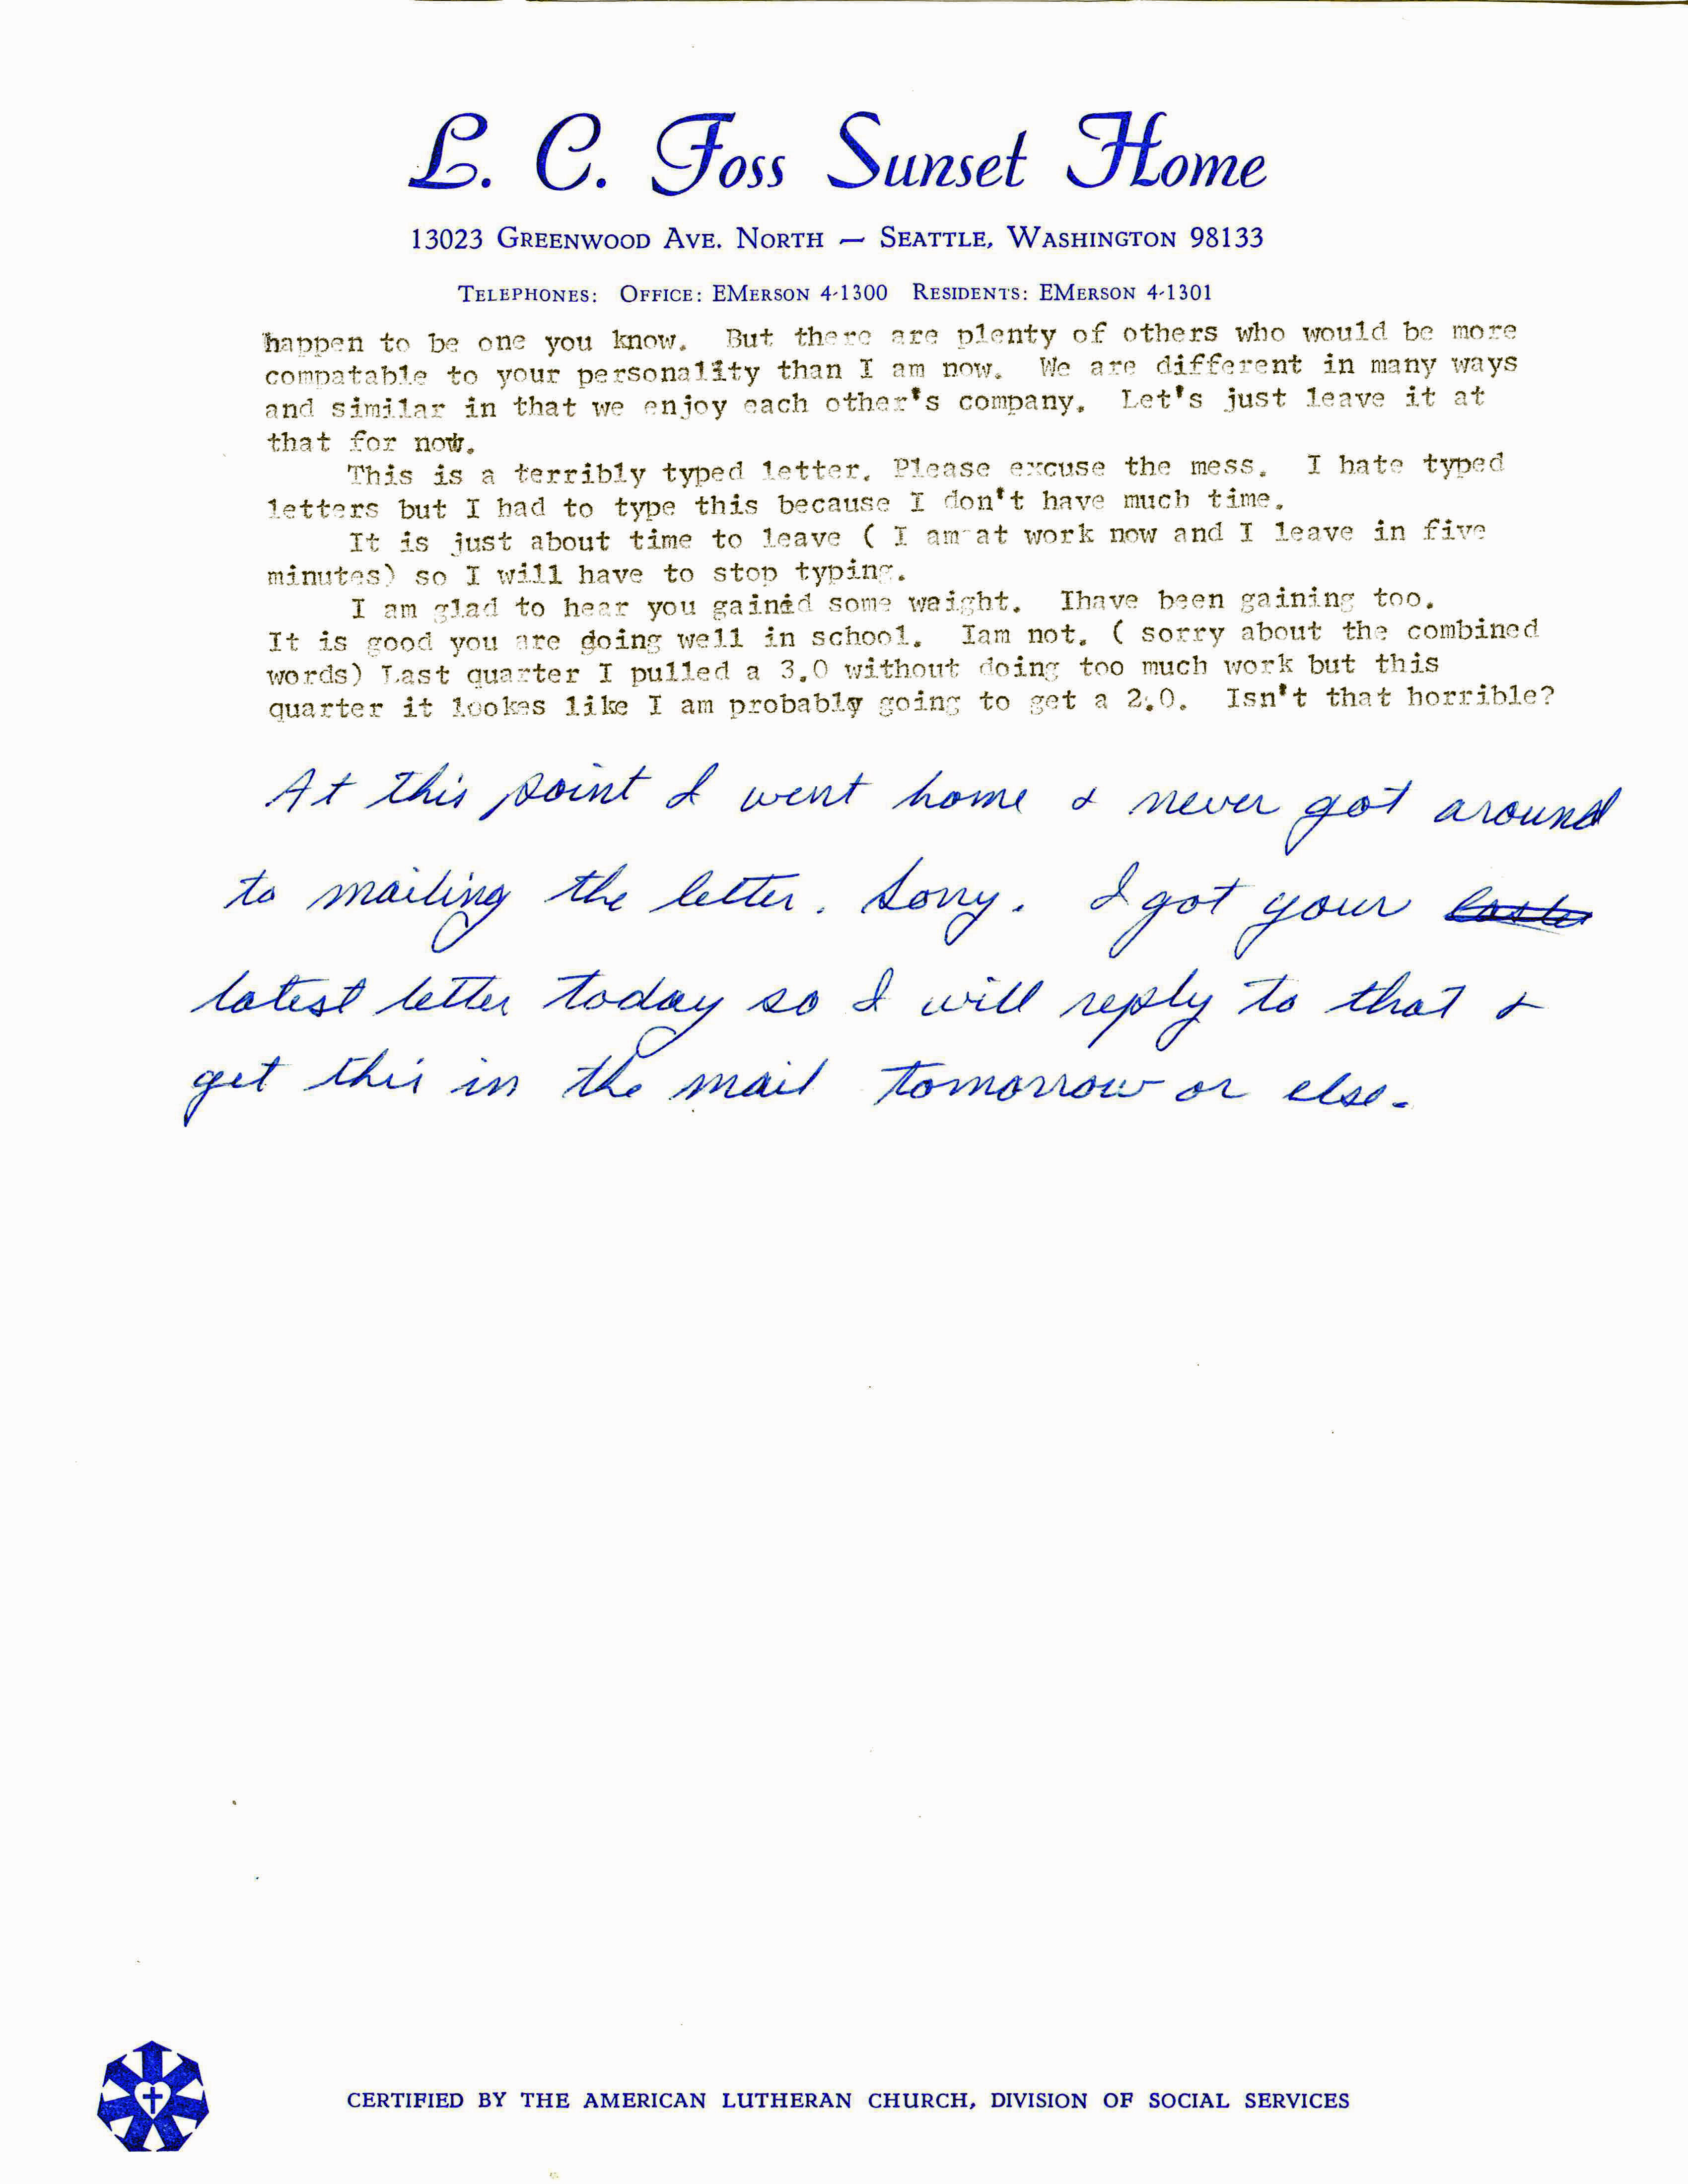 L. C. Foss Sunset Home
13023 Greenwood Ave. North — Seattle, Washington 98133
Telephones: Office: EMerson 4-1300 Residents: EMerson 4-1301
happen to be one you know. But there are plenty of others who would be more
compatable to your personality than I am now. We are different in many ways
and similar in that we enjoy each other's company. Let's just leave it at
that for now.
This is a terribly typed letter. Please excuse the mess. I hate typed
letters but I had to type this because I don't have much time.
It is just about time to leave ( I am at work now and I leave in five
minutes) so I will have to stop typing.
I am glad to hear you gained some weight. Ihave been gaining too.
It is good you are doing well in school. Iam not. ( sorry about the combined
words) Last quarter I pulled a 3.0 without doing too much work but this
quarter it lookes like I am probably going to get a 2.0. Isn't that horrible?
At this point I went home & never got around
to mailing the letter. Sorry. I got your
latest letter today so I will reply to that &
get this in the mail tomorrow or else.
CERTIFIED BY THE AMERICAN LUTHERAN CHURCH, DIVISION OF SOCIAL SERVICES